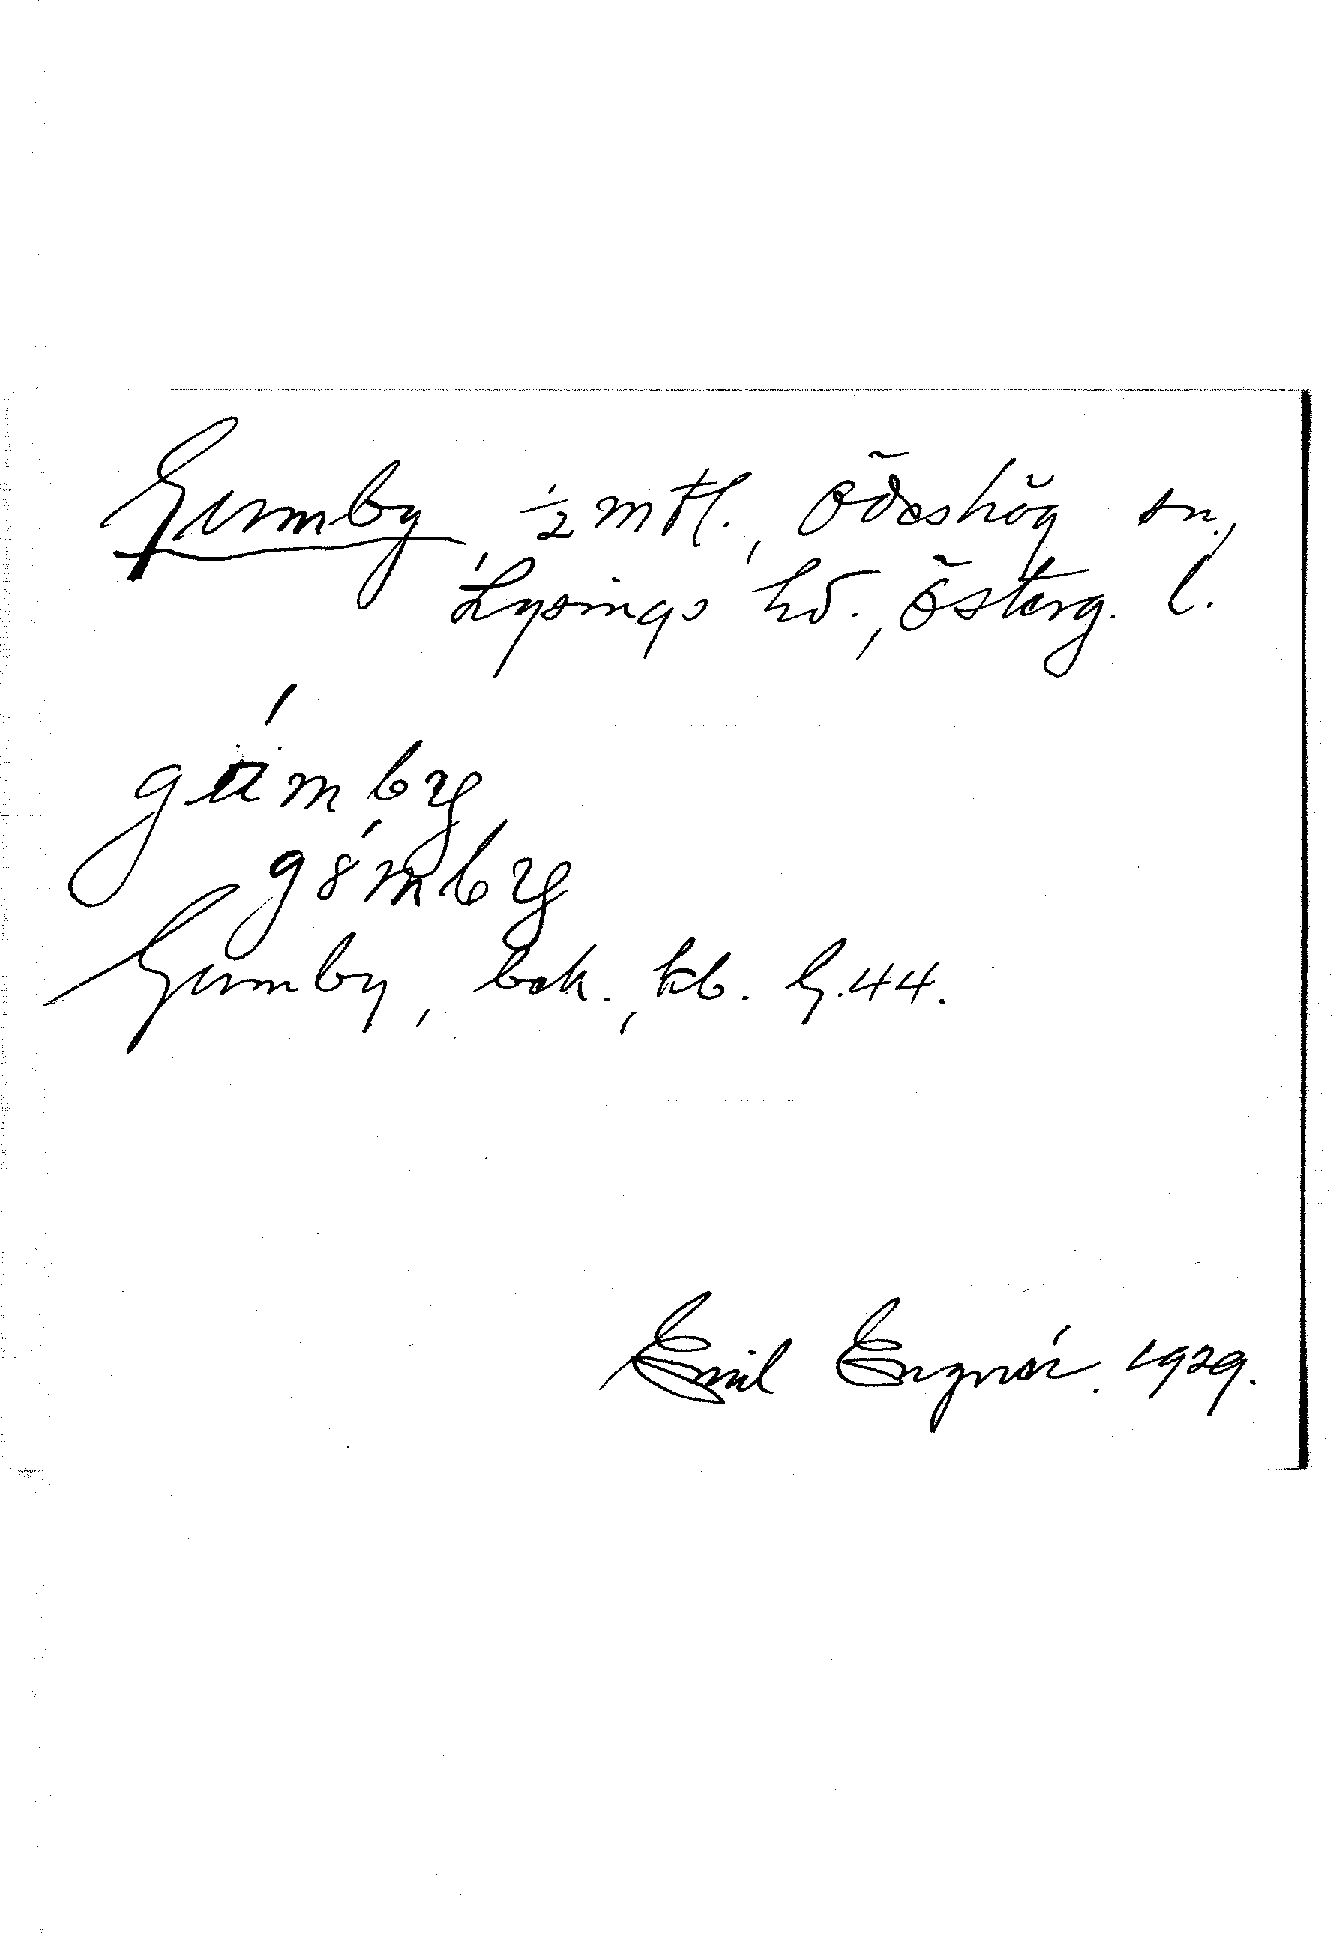 Gumby, 1/2 mtl., Ödeshög sn.,
Lysings hd., Österg. l.
gúmby
gómby
Gumby, bok., kb. G.44.
Emil 1929.